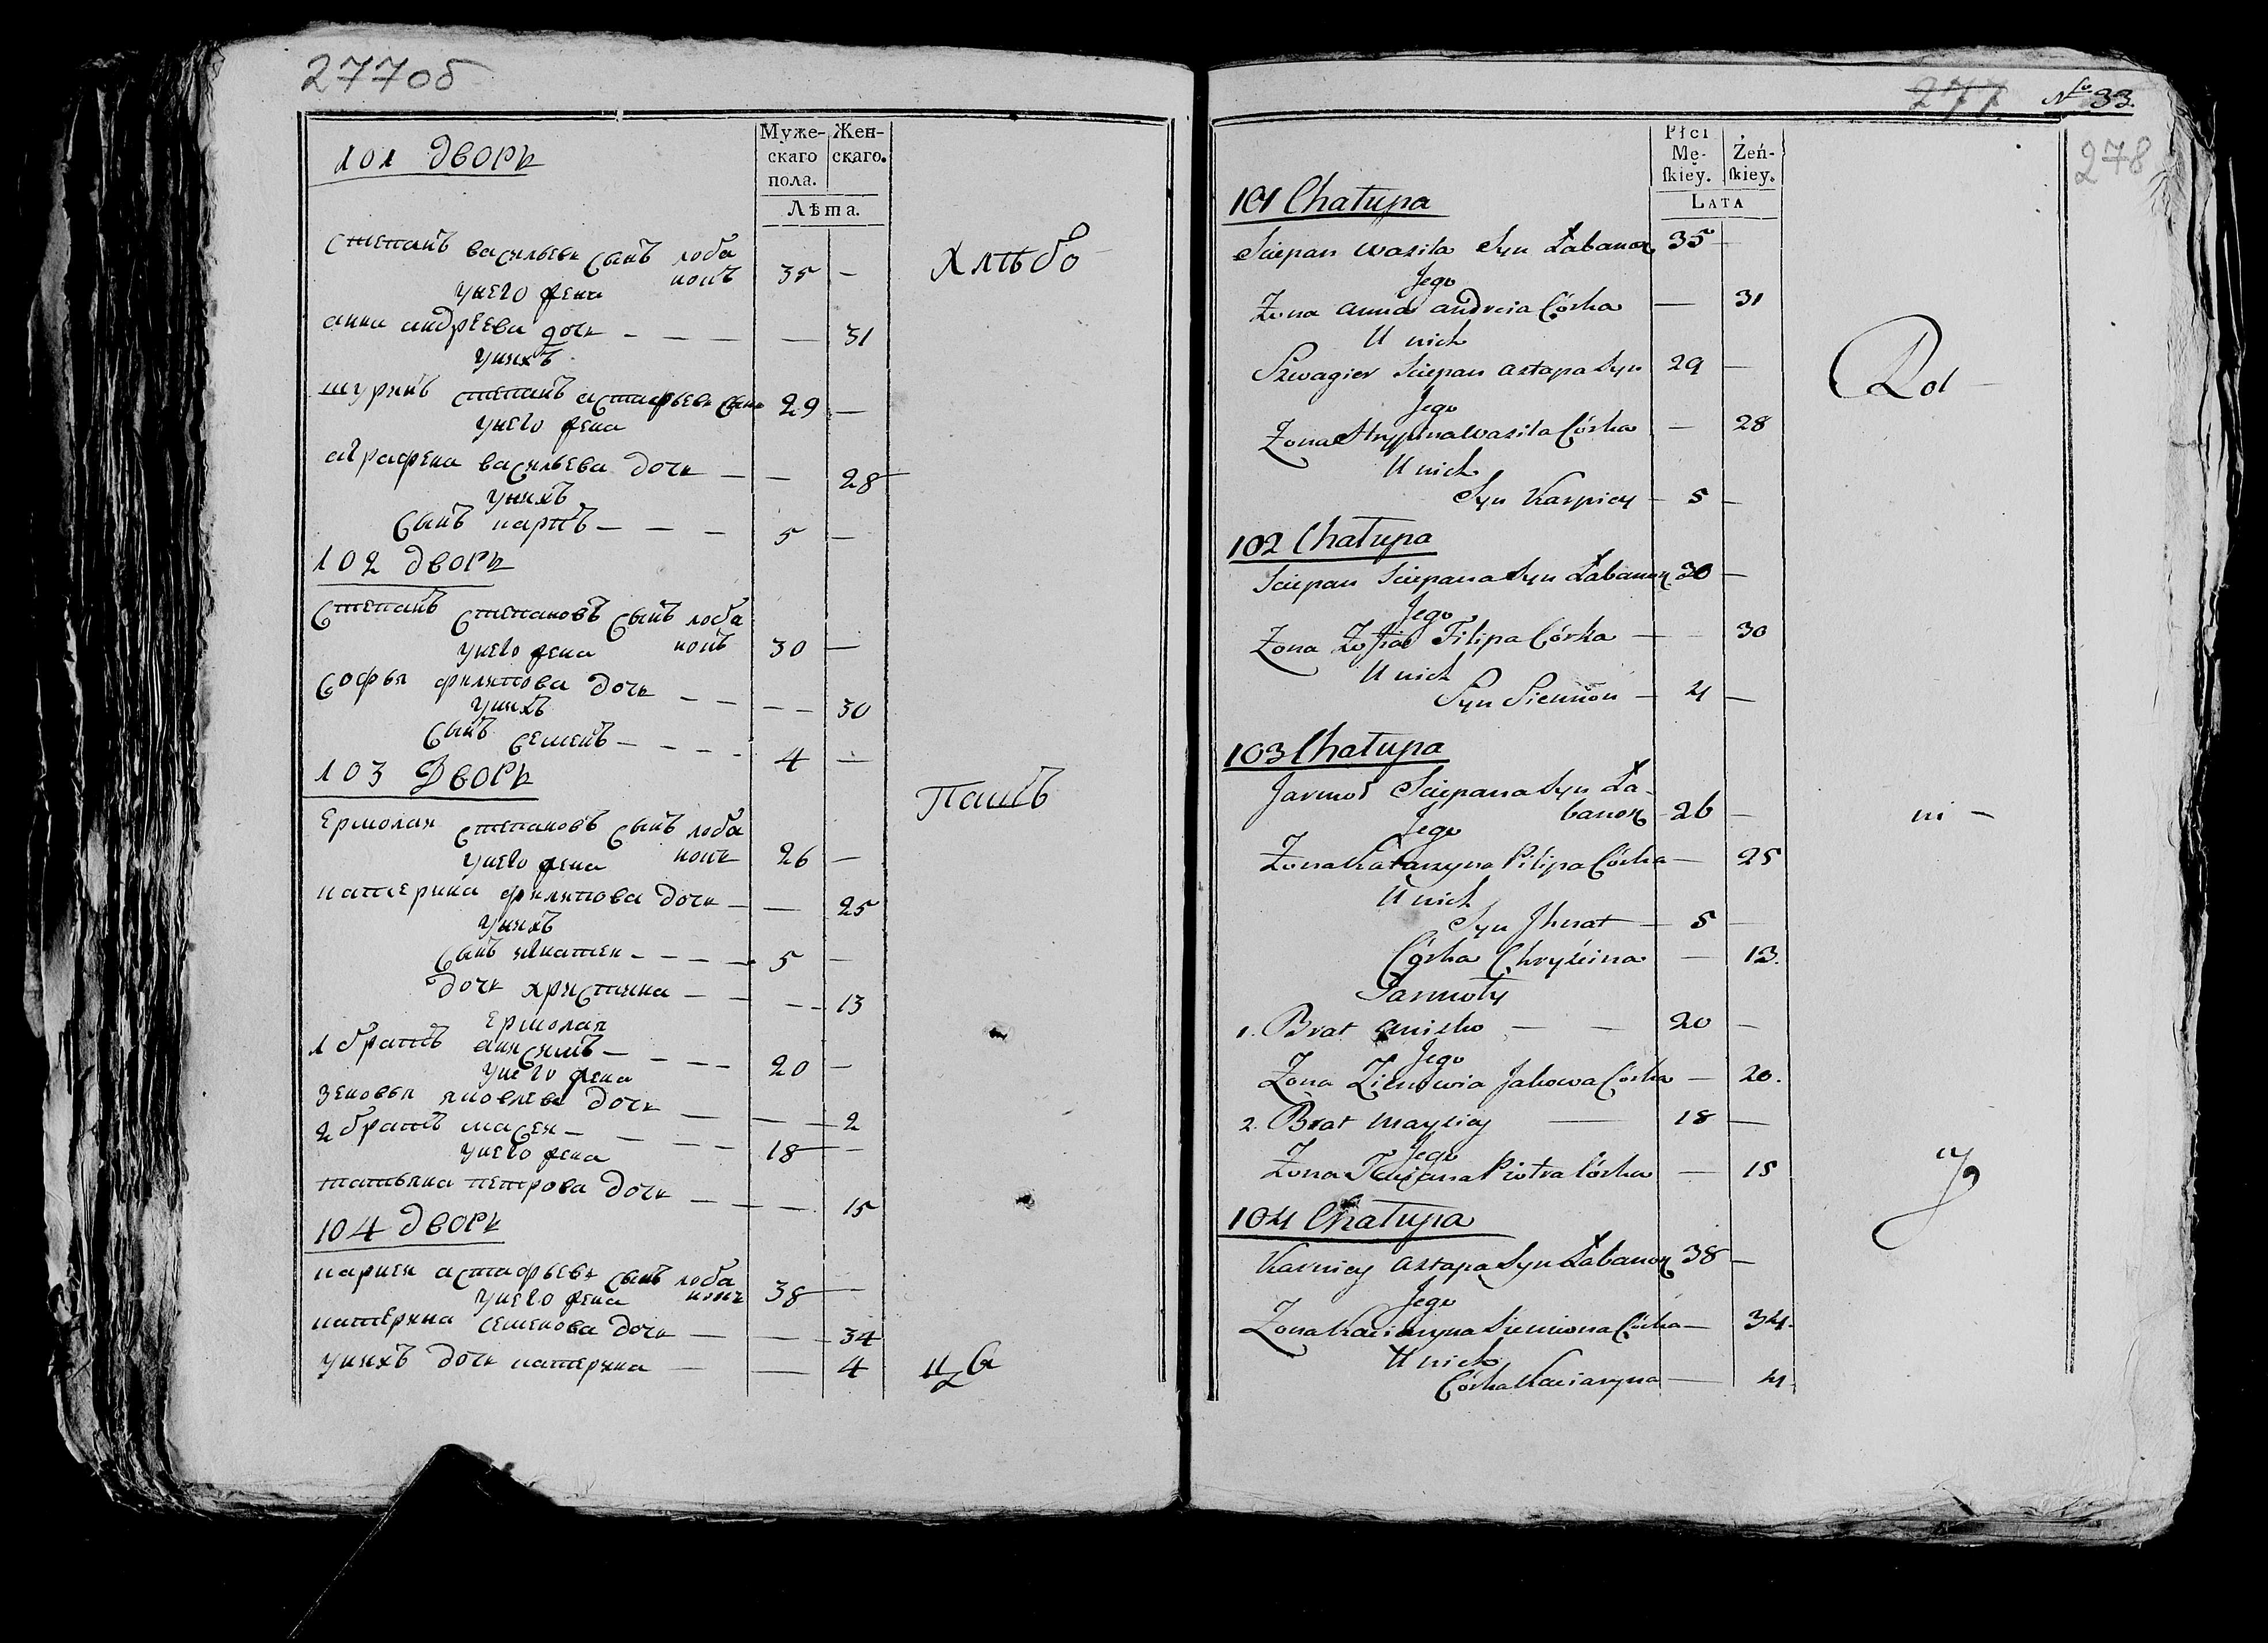 277об
101 дворъ
Муже-скаго пола.
Жен-скаго.
Лѣта.
Степанъ васильевъ сынъ лоба
нокъ 35 —
унего жена
анна андреева дочь — — — — 31
унихъ
шуринъ степанъ астафьевъ сынъ 29 —
унего жена
аграфена васильева дочь — — 28
унихъ
сынъ карпъ — — — 5 —
Хлѣбо
102 дворъ
Степанъ степановъ сынъ лоба
унего жена нокъ 30 —
софья филипова дочь — — — — 30
унихъ
сынъ семенъ — — — — 4 —
103 Дворъ
Ермолай степановъ сынъ лоба
унего жена нокъ 26 —
катерина филипова дочь — — 25
унихъ
сынъ игнатей — — — — 5 —
дочь христина — — — — 13
Ермолая
1 братъ анисимъ — — — — 20 —
унего жена
зеновья яковлева дочь — — — 2
2 братъ масей — — — — 18 —
унего жена
татьяна петрова дочь — — — 15
Пашъ
104 дворъ
карней астафьевъ сынъ лоба
унего жена нокъ 38 —
катерина семенова дочь — — 34
унихъ дочь катерина — — 4
цъ
277 No 33.
278
Płci Mę-ſkiey.
Żeń-ſkiey.
LATA
101 Chałupa
Sciepan wasila Syn Łabanok 35 —
Jego
Zona anna andreia Córka — 31
U nich
Szwagier Sciepan astapa Syn 29 —
Jego
Zona Ahrypina wasila Córka — 28
U nich
Syn Karpiey — 5 —
Rol —
102 Chałupa
Sciepan Sciepana Syn Łabanok 30 —
Jego
Zona Zofia Filipa Córka — 30
U nich
Syn Siemion — 4 —
103 Chałupa
Jarmoł Sciepana Syn Ła-
banok 26 —
Jego
Zona Katarzyna Pilipa Córka — 25
U nich
Syn Jhnat — 5 —
Córka Chryścina — 13.
Jarmoły
1. Brat anisko — — 20 —
Jego
Zona Zienowia Jakowa Córka — 20.
2. Brat Maysiey — 18 —
Jego
Zona Taciana Piotra Córka — 15
ni —
104 Chałupa
Karniey astapa Syn Łabanok 38 —
Jego
Zona Kaciaryna Siemiona Córka — 34.
U nich
Córka Kaciaryna — 4.